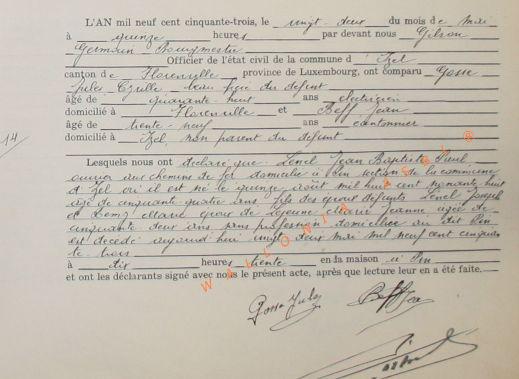 L'AN mil neuf cent cinquante-trois, le vingt-deux du mois de mai
à quinze heures par devant nous Gilson
Germain Bourgmestre
Officier de l'état civil de la commune d'Izel
canton de Florenville province de Luxembourg, ont comparu Gosse
Jules Cyrille beau frère du défunt
âgé de quarante-neuf ans electricien
domicilié à Florenville et Beff Jean
âgé de trente-neuf ans cantonnier
domicilié à Izel, non parent du défunt
14
Lesquels nous ont déclaré que Lenel Jean Baptiste Paul
ouvrier aux chemins de fer domicilié à Pin section de la commune
d'Izel où il est né le quinze août mil huit cent nonante huit
âgé de cinquante quatre ans fils des époux défunts Lenel Joseph
et Marie époux de Lejeune Marie Jeanne âgée de
cinquante deux ans sans profession domiciliée au dit Pin
est décédé aujourd'hui vingt deux mai mil neuf cent cinquan
te trois
à dix heures trente en sa maison à Pin
et ont les déclarants signé avec nous le présent acte, après que lecture leur en a été faite.
Gosse Jules Beff Jean
WALLONIA